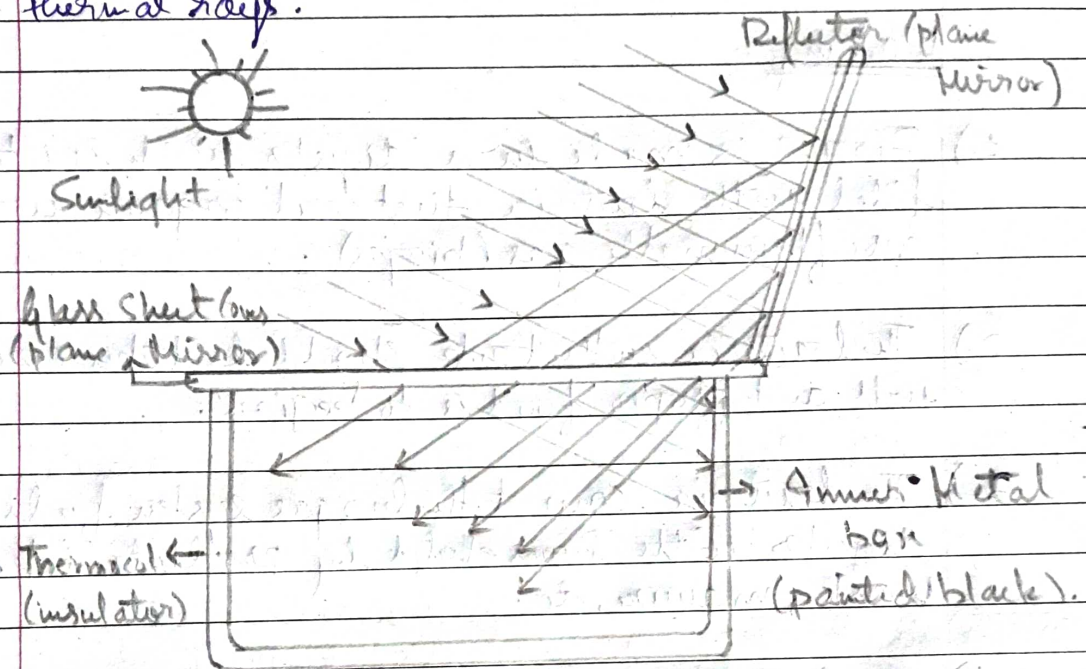 thermal rays.
Reflector (plane
Mirror)
Sunlight
Glass Sheet
(plane Mirror)
Inner Metal
box
(painted black).
Thermocol
(insulator)